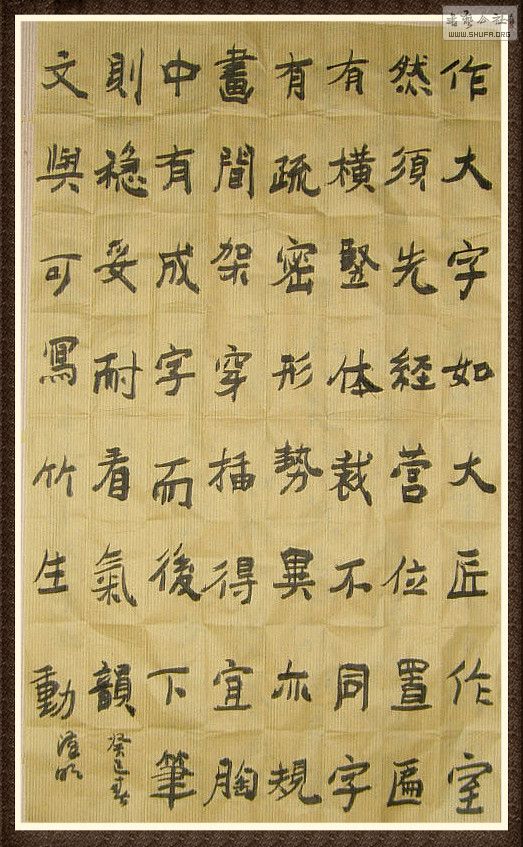 書藝公社
WWW.SHUFA.ORG
作大字如大匠作室
然須先經营位置匾
有橫竪体裁不同字
有疏密形勢異亦規
畫間架穿插得宜胸
中有成字而後下筆
則稳妥耐看氣韻
癸巳春
文與可寫竹生動